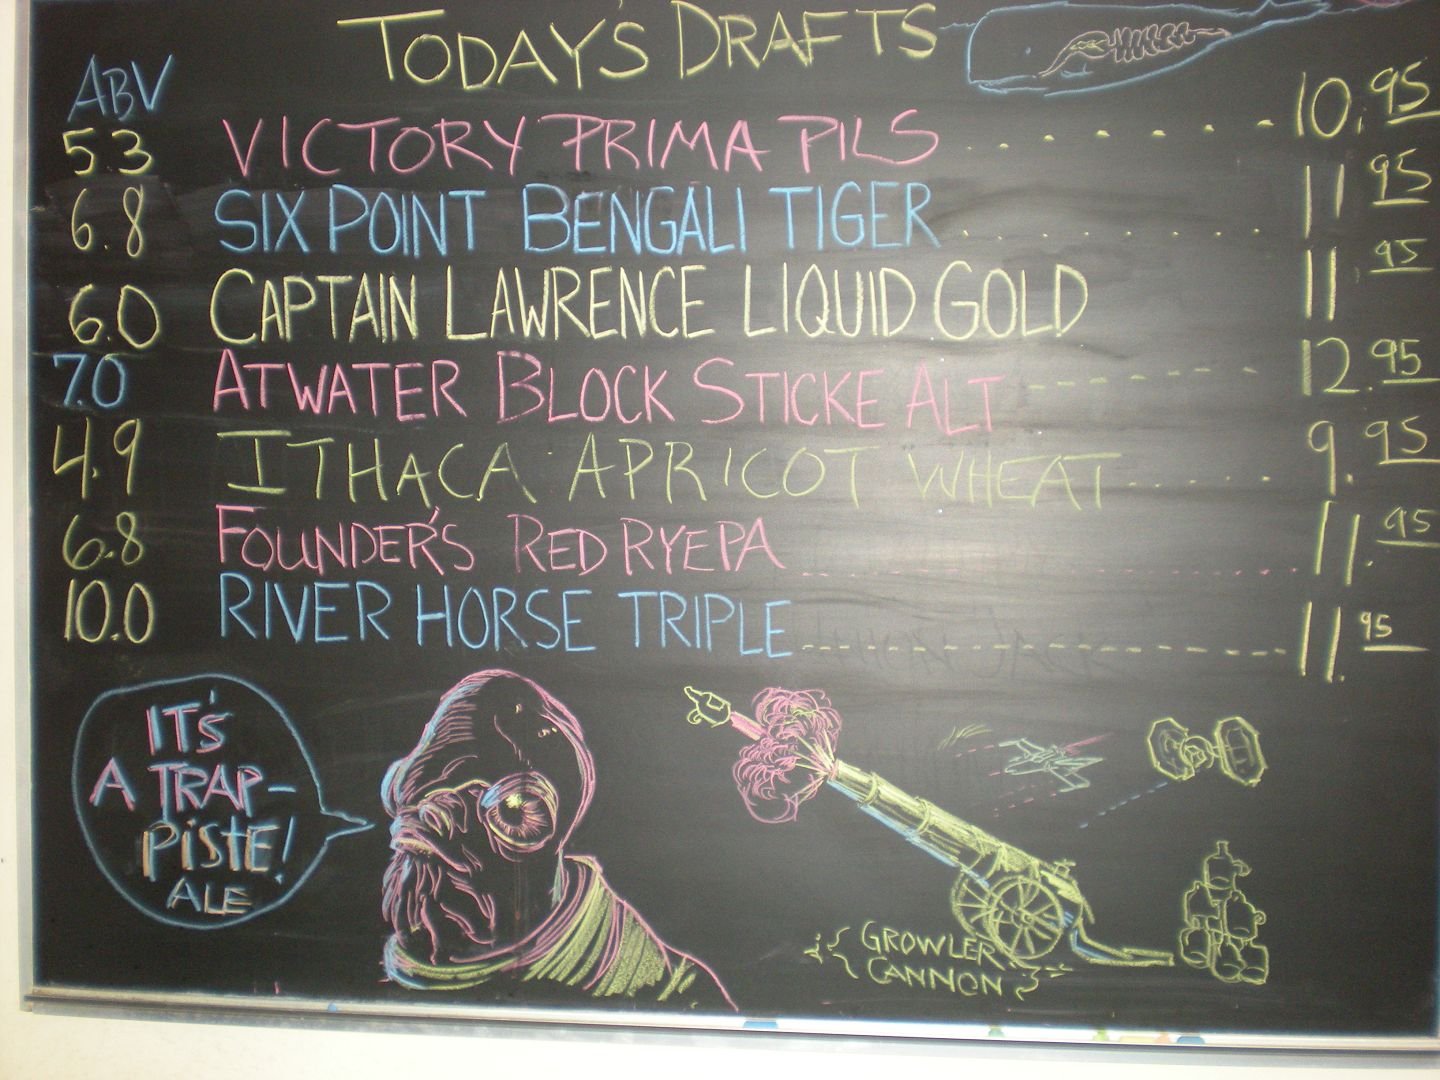 TODAY'S DRAFTS
ABV
5.3 VICTORY PRIMA PILS . . . . . . . 10.95
6.8 SIX POINT BENGALI TIGER . . . . . . . . . . 11.95
6.0 CAPTAIN LAWRENCE LIQUID GOLD 11.95
7.0 ATWATER BLOCK STICKE ALT - - - - - - - - - 12.95
4.9 ITHACA APRICOT WHEAT . . . . . . . 9.95
6.8 FOUNDER'S RED RYEPA . . . . . . . . . . . . . . . . 11.95
10.0 RIVER HORSE TRIPLE - - - - - - - - - - - - - - - - 11.95
IT'S
A TRAP-
PISTE!
ALE
GROWLER
CANNON